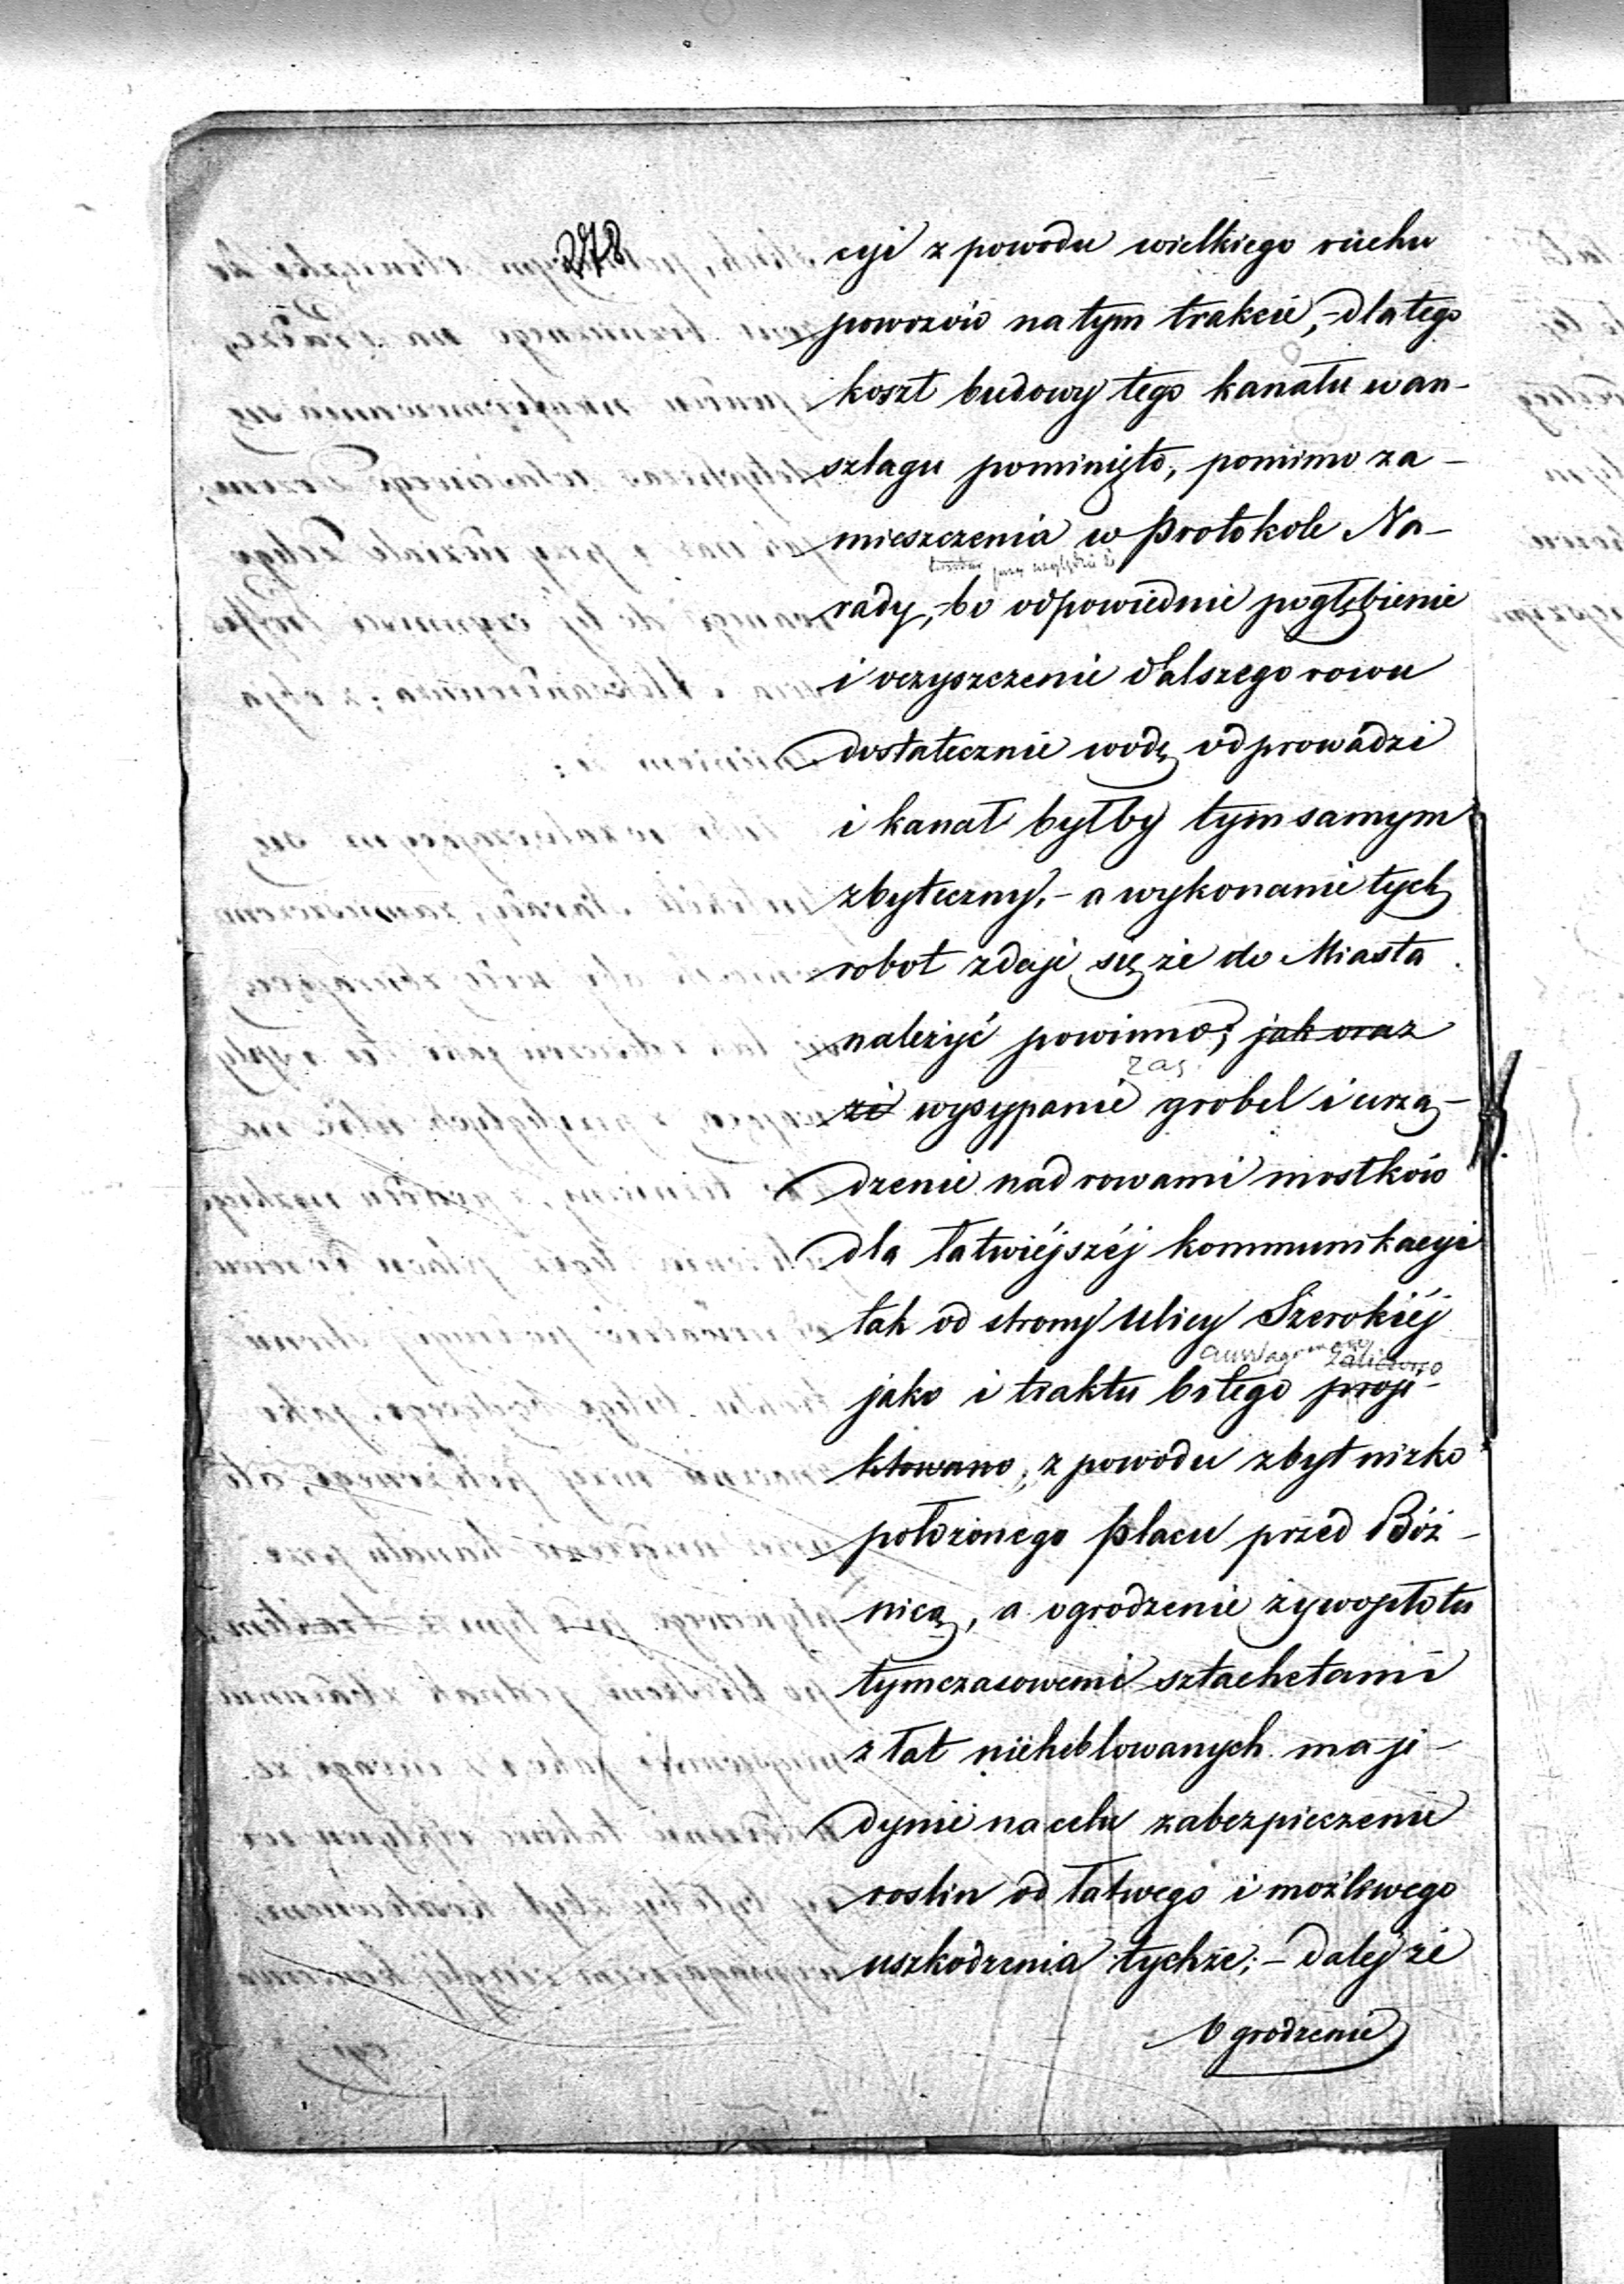 278
cyi z powodu wielkiego ruchu
powozów na tym trakcie, – dla tego
koszt budowy tego kanału w an-
szlagu pominięto, pomimo za-
mieszczenia w Protokole Na-
przy względzie że
rady, – bo odpowiednie pogłębienie
i oczyszczenie dalszego rowu
dostatecznie wodę odprowadzi
i kanał byłby tym samym
zbyteczny, – a wykonanie tych
robot zdaje się że do Miasta
należyć powinno; jak oraz
zaś
że wysypanie grobel i urzą-
dzenie nad rowami mostków
dla łatwiéjszéj kommunikacyi
tak od strony Ulicy Szerokiéj
zaliczono
jako i traktu bitego proje-
ktowano, z powodu zbyt nizko
położonego placu przed Bóż-
nicą, a ogrodzenie żywopłotu
tymczasowemi sztachetami
z łat nieheblowanych ma je-
dynie na celu zabezpieczenie
roslin od łatwego i możliwego
uszkodzenia tychże; – dalej że
Ogrodzenie